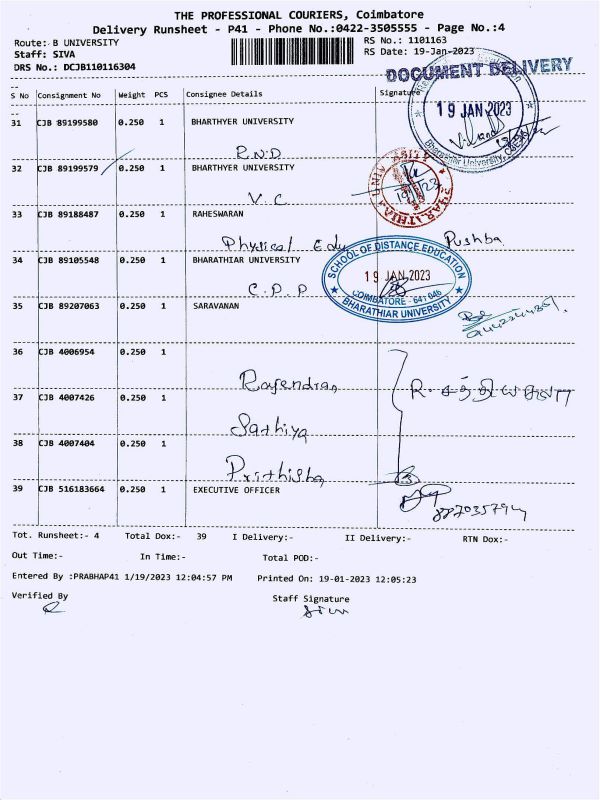 THE PROFESSIONAL COURIERS, Coimbatore
Delivery Runsheet - P41 - Phone No.:0422-3505555 - Page No.:4
Route: B UNIVERSITY
RS No.: 1101163
Staff: SIVA
RS Date: 19-Jan-2023
DRS No.: DCJB110116304
DOCUMENT DELIVERY
S No Consignment No Weight PCS Consignee Details Signature
19 JAN 2023
Bharathiar University,
31 CJB 89199580 0.250 1 BHARTHYER UNIVERSITY
R.N.D
32 CJB 89199579 0.250 1 BHARTHYER UNIVERSITY
V.C
33 CJB 89188487 0.250 1 RAHESWARAN
Physical Edu Pushba
34 CJB 89105548 0.250 1 BHARATHIAR UNIVERSITY
C.D.P
SCHOOL OF DISTANCE EDUCATION
19 JAN 2023
COIMBATORE - 641 046
BHARATHIAR UNIVERSITY
35 CJB 89207063 0.250 1 SARAVANAN
36 CJB 4006954 0.250 1
Rajendran
37 CJB 4007426 0.250 1
Sathiya
38 CJB 4007404 0.250 1
Prithisha
39 CJB 516183664 0.250 1 EXECUTIVE OFFICER
Tot. Runsheet:- 4 Total Dox:- 39 I Delivery:- II Delivery:- RTN Dox:-
Out Time:- In Time:- Total POD:-
Entered By :PRABHAP41 1/19/2023 12:04:57 PM Printed On: 19-01-2023 12:05:23
Verified By Staff Signature